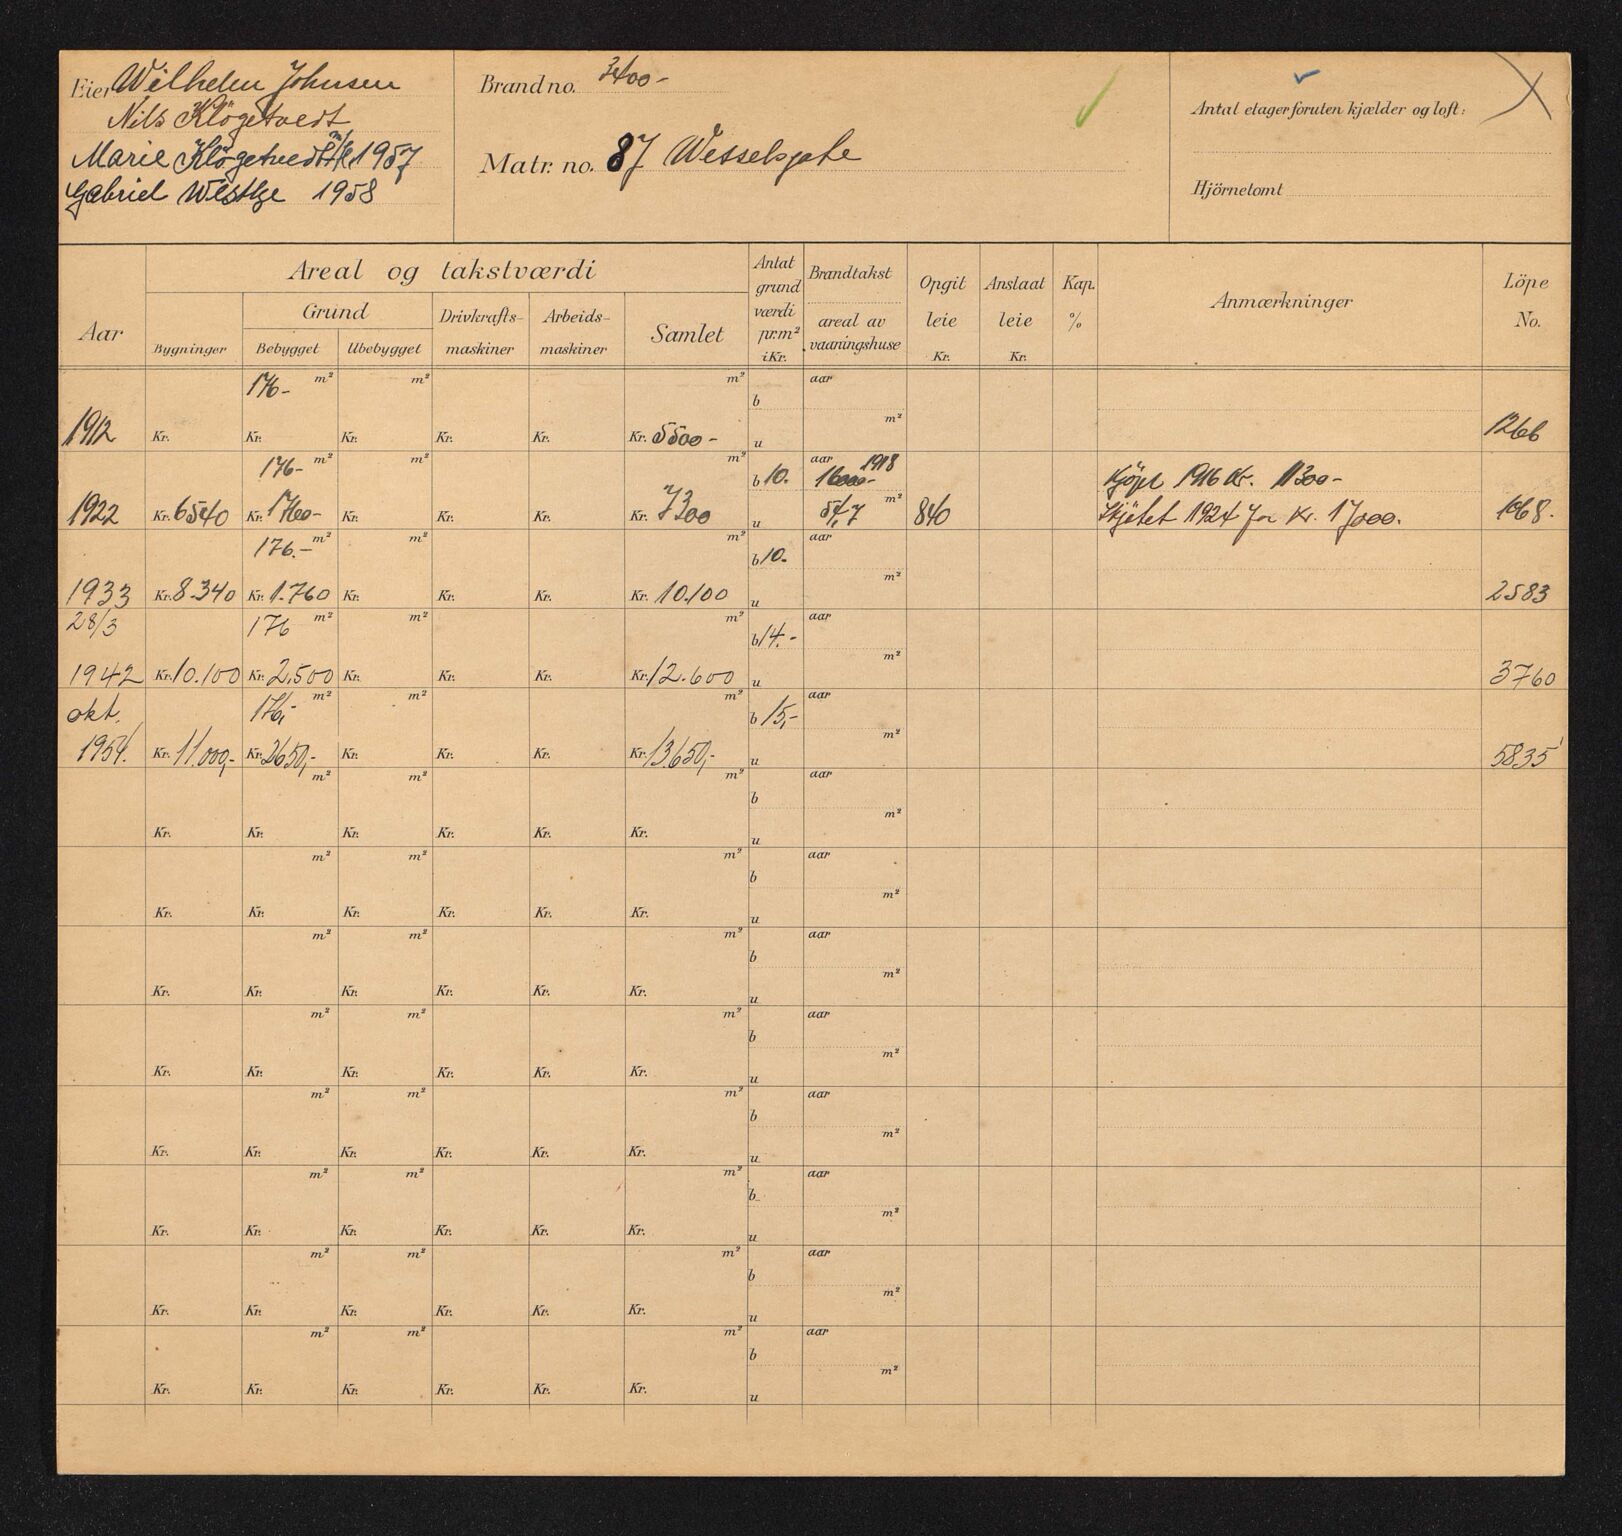 Eier Wilhelm Johnsen
Nils Klögetvedt
Marie Klögetvedt 1957
Gabriel 1958
Brand no. 3400-
Matr. no. 87 Wesselsgate
Antal etager foruten kjælder og loft:
Hjörnetomt
Aar
Areal og takstværdi
Bygninger
Grund
Bebygget Ubebygget
Drivkrafts-
maskiner
Arbeids-
maskiner
Samlet
Antat
grund
værdi
pr.m²
i Kr.
Brandtakst
areal av
vaaningshuse
Opgit
leie
Kr.
Anslaat
leie
Kr.
Kap.
%
Anmærkninger
Löpe
No.
176- m² m² m² aar
b
m²
1912 Kr. Kr. Kr. Kr. Kr. Kr. 5500- u 1266
176- m² m² m² b 10. aar 1918 16000- Kjöpt 1916 Kr. 11300-
1922 Kr. 6540 Kr. 1760- Kr. Kr. Kr. Kr. 7300 u 54,7 m² 840 Skjötet 1924 for Kr. 17000. 1068.
176.- m² m² m² b 10. aar
m²
1933 Kr. 8.340 Kr. 1.760 Kr. Kr. Kr. Kr. 10.100 u 2583
28/3 176 m² m² m² b 14.- aar
m²
1942 Kr. 10.100 Kr. 2.500 Kr. Kr. Kr. Kr. 12.600 u 3760
okt. 176,- m² m² m² b 15,- aar
m²
1954. Kr. 11.000,- Kr. 2650,- Kr. Kr. Kr. Kr. 13.650,- u 5835
m² m² m² aar
b
m²
Kr. Kr. Kr. Kr. Kr. Kr. u
m² m² m² aar
b
m²
Kr. Kr. Kr. Kr. Kr. Kr. u
m² m² m² aar
b
m²
Kr. Kr. Kr. Kr. Kr. Kr. u
m² m² m² aar
b
m²
Kr. Kr. Kr. Kr. Kr. Kr. u
m² m² m² aar
b
m²
Kr. Kr. Kr. Kr. Kr. Kr. u
m² m² m² aar
b
m²
Kr. Kr. Kr. Kr. Kr. Kr. u
m² m² m² aar
b
m²
Kr. Kr. Kr. Kr. Kr. Kr. u
m² m² m² aar
b
m²
Kr. Kr. Kr. Kr. Kr. Kr. u